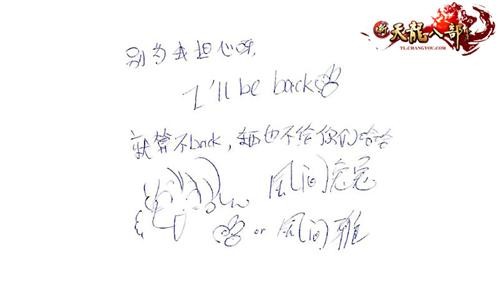 新天龙八部
TL.CHANGYOU.COM
别为我担心呀,
I'll be back
就算不back, 也不给你们哈哈
风间
or 风间雅